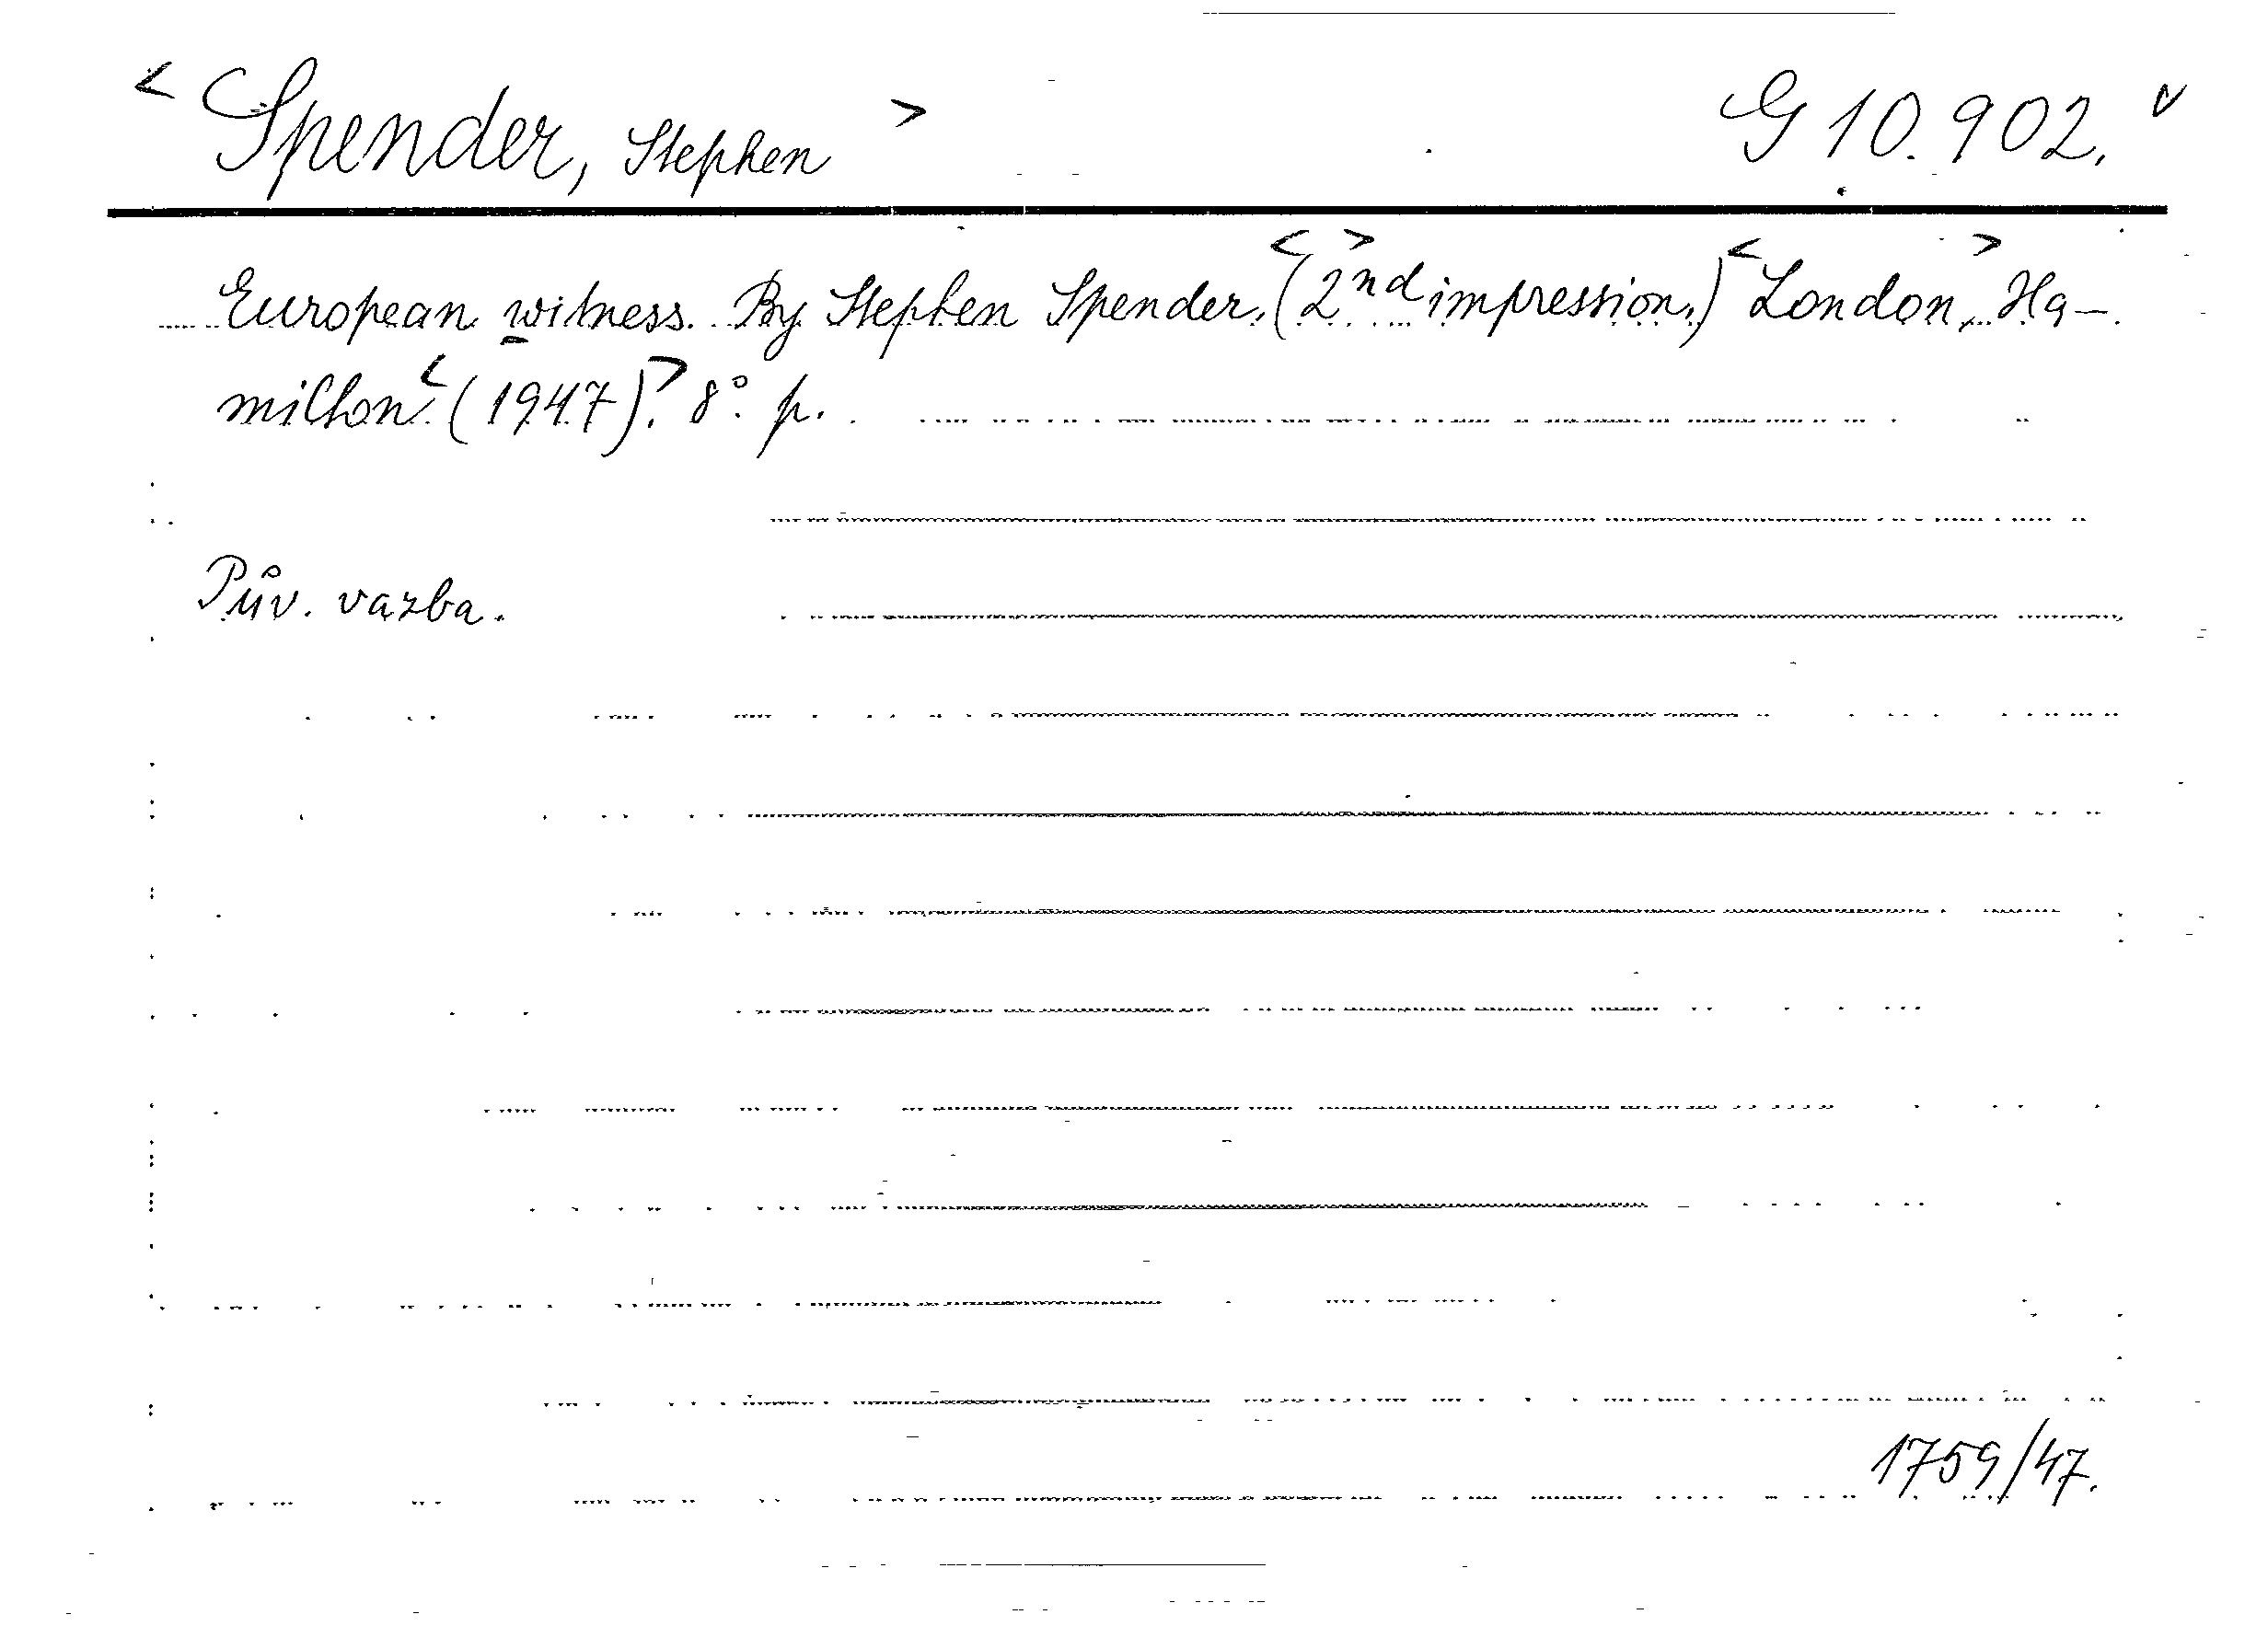 < Spender, Stephen > G 10.902. v
European witness. By Stephen Spender. <(2nd> impression.) <London>, Ha-
milton <(1947).> 8° p.
Pův. vazba.
1759/47.